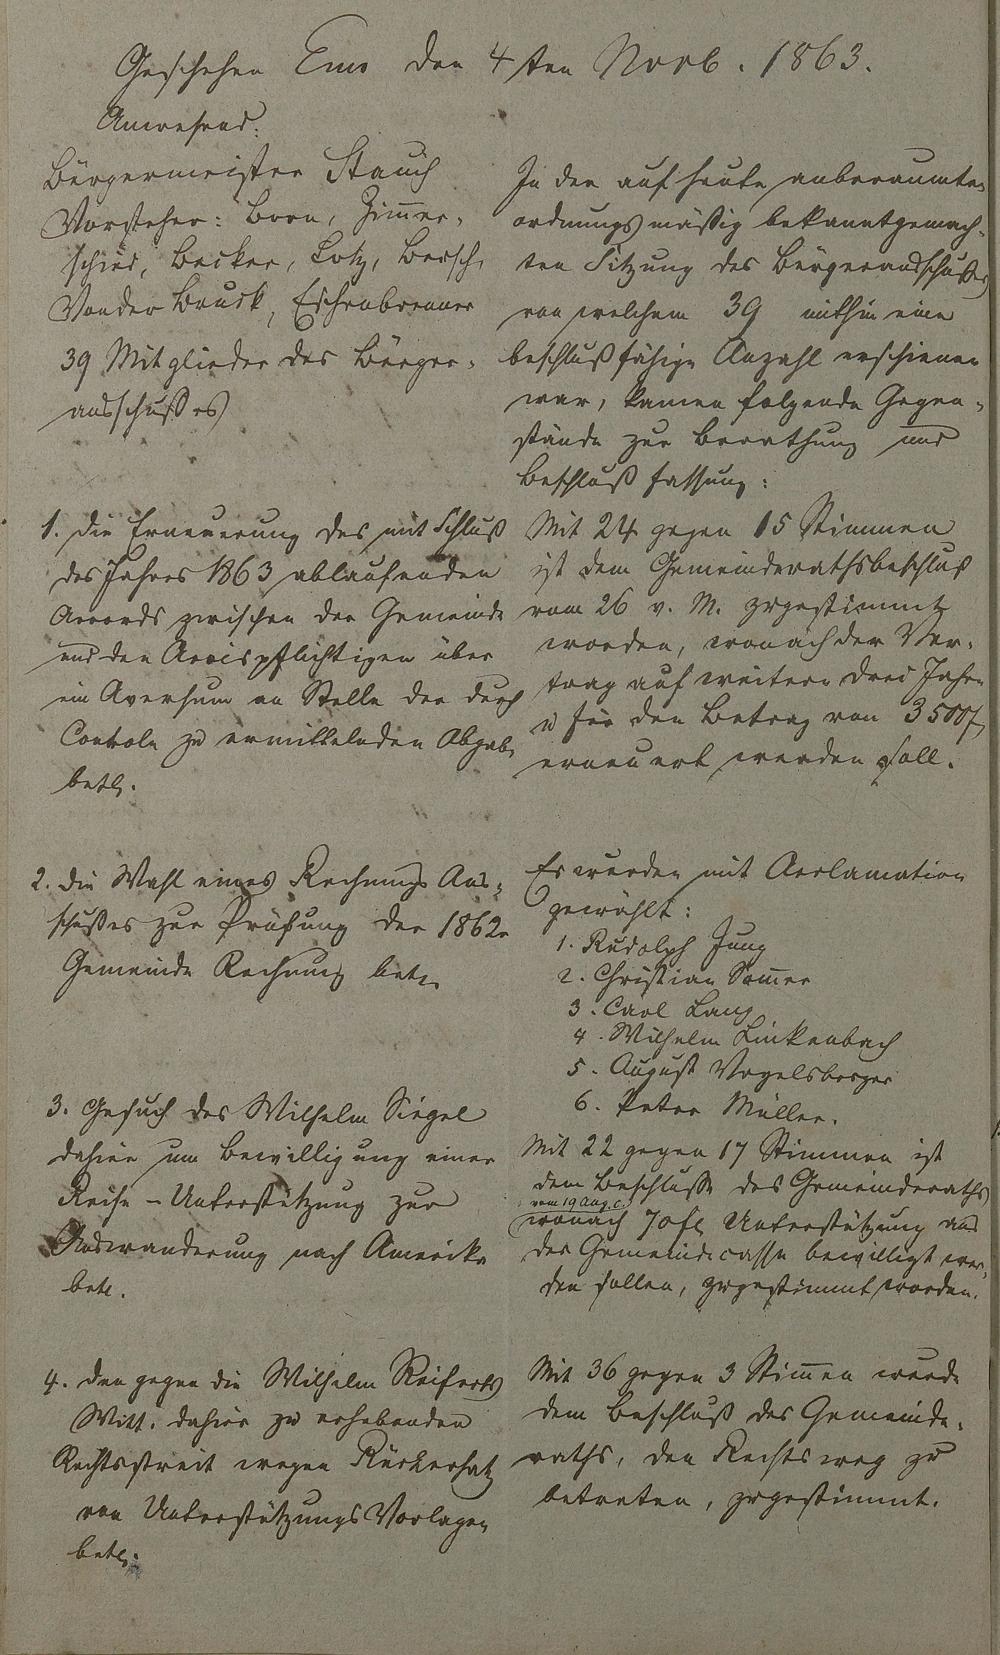 Geschehen Ems den 4ten Novb. 1863.
Anwesend:
Bürgermeister Stauch
Vorsteher: Born, Zimmer-
schied, Becker, Lotz, Bersch,
Von der Bruck, Eschenbrenner
39 Mitglieder des Bürger-
ausschußes
In der auf heute anberaumten
ordnungsmäßig bekanntgemach-
ten Sitzung des Bürgerausschußes
von welchem 39 mithin eine
beschlußfähige Anzahl erschienen
war, kamen folgende Gegen-
stände zur Berathung und
Beschlußfassung:
1. die Erneuerung des mit Schluß
des Jahres 1863 ablaufenden
Accords zwischen der Gemeinde
und den Accispflichtigen über
ein Aversum an Stelle der durch
Controle zu ermittelnden Abgabe
betr.
Mit 24 gegen 15 Stimmen
ist dem Gemeinderathsbeschluß
vom 26 v. M. zugestimmt
worden, wonach der Ver-
trag auf weitere drei Jahre
u für den Betrag von 3500 f
erneuert werden soll.
2. die Wahl eines Rechnungs Aus-
schußes zur Prüfung der 1862r
Gemeinde Rechnung betr.
Es wurden mit Acclamation
gewählt:
1. Rudolph Jung
2. Christian Sommer
3. Carl Lang
4. Wilhelm Linkenbach
5. August Vogelsberger
6. Peter Müller.
3. Gesuch des Wilhelm Siegel
dahier um Bewilligung einer
Reise-Unterstützung zur
Auswanderung nach Amerika
betr.
Mit 22 gegen 17 Stimmen ist
dem Beschlusse des Gemeinderaths
vom 19 Aug. c.
wonach 70 fl Unterstützung aus
der Gemeindecasse bewilligt wer-
den sollen, zugestimmt worden.
4. den gegen die Wilhelm Reiferts
Witt. dahier zu erhebenden
Rechtsstreit wegen Rückersatz
von Unterstützungs Vorlagen
betr.
Mit 36 gegen 3 Stimmen wurde
dem Beschluß des Gemeinde-
raths, den Rechtsweg zu
betreten, zugestimmt.